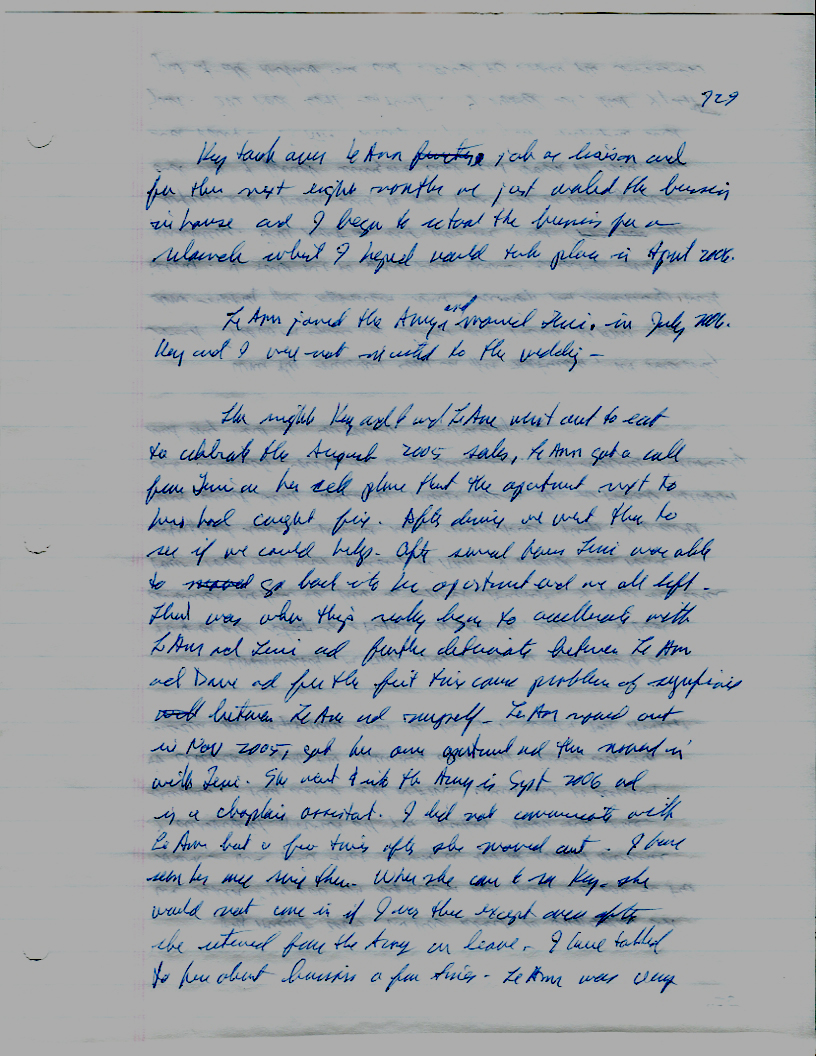 729
Key took over LeAnn job as liaison and
for the next eight months we just worked the business
in house and I began to retool the business for a
relaunch what I hoped would take place in April 2006.
LeAnn joined the Army and married in July 2006.
Key and I were not invited to the wedding –
The night Key and I and LeAnn went out to eat
to celebrate the August 2005 sales, LeAnn got a call
from on her cell phone that the apartment next to
hers had caught fire. After dinner we went there to
see if we could help. After several hours was able
to moved go back into her apartment and we all left.
That was when things really began to accellerate with
LeAnn and and further deteriorate between LeAnn
and Dave and for the first time came problem of significance
well between LeAnn and myself. LeAnn moved out
in Nov 2005, got her own apartment and then moved in
with She went into the Army in Sept 2006 and
is a chaplain assistant. I did not communicate with
LeAnn but a few times after she moved out. I have
seen her since then. When she came to see Key she
would not come in if I was there except once after
she returned from the Army on leave. I have talked
to her about business a few times - LeAnn was very